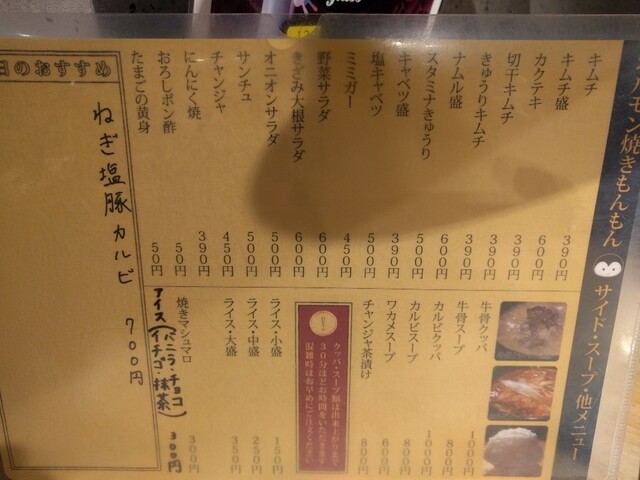 ルモン焼きもんもん サイド・スープ・他メニュー
キムチ 390円
キムチ盛 600円
カクテキ 390円
切干キムチ 390円
きゅうりキムチ 390円
ナムル盛 600円
スタミナきゅうり 500円
キャベツ盛 390円
塩キャベツ 500円
ミミガー 450円
野菜サラダ 600円
きざみ大根サラダ 600円
オニオンサラダ 500円
サンチュ 500円
チャンジャ 450円
にんにく焼 390円
おろしポン酢 50円
たまごの黄身 50円
牛骨クッパ 1000円
牛骨スープ 800円
カルビクッパ 1000円
カルビスープ 800円
ワカメスープ 600円
チャンジャ茶漬け 800円
クッパ・スープ類は出来上がりまで
30分ほどお時間をいただきます
混雑時はお早めにご注文ください
ライス・小盛 150円
ライス・中盛 250円
ライス・大盛 350円
焼きマシュマロ 300円
アイス(バニラ・チョコ
イチゴ・抹茶) 300円
日のおすすめ
ねぎ塩豚カルビ 700円